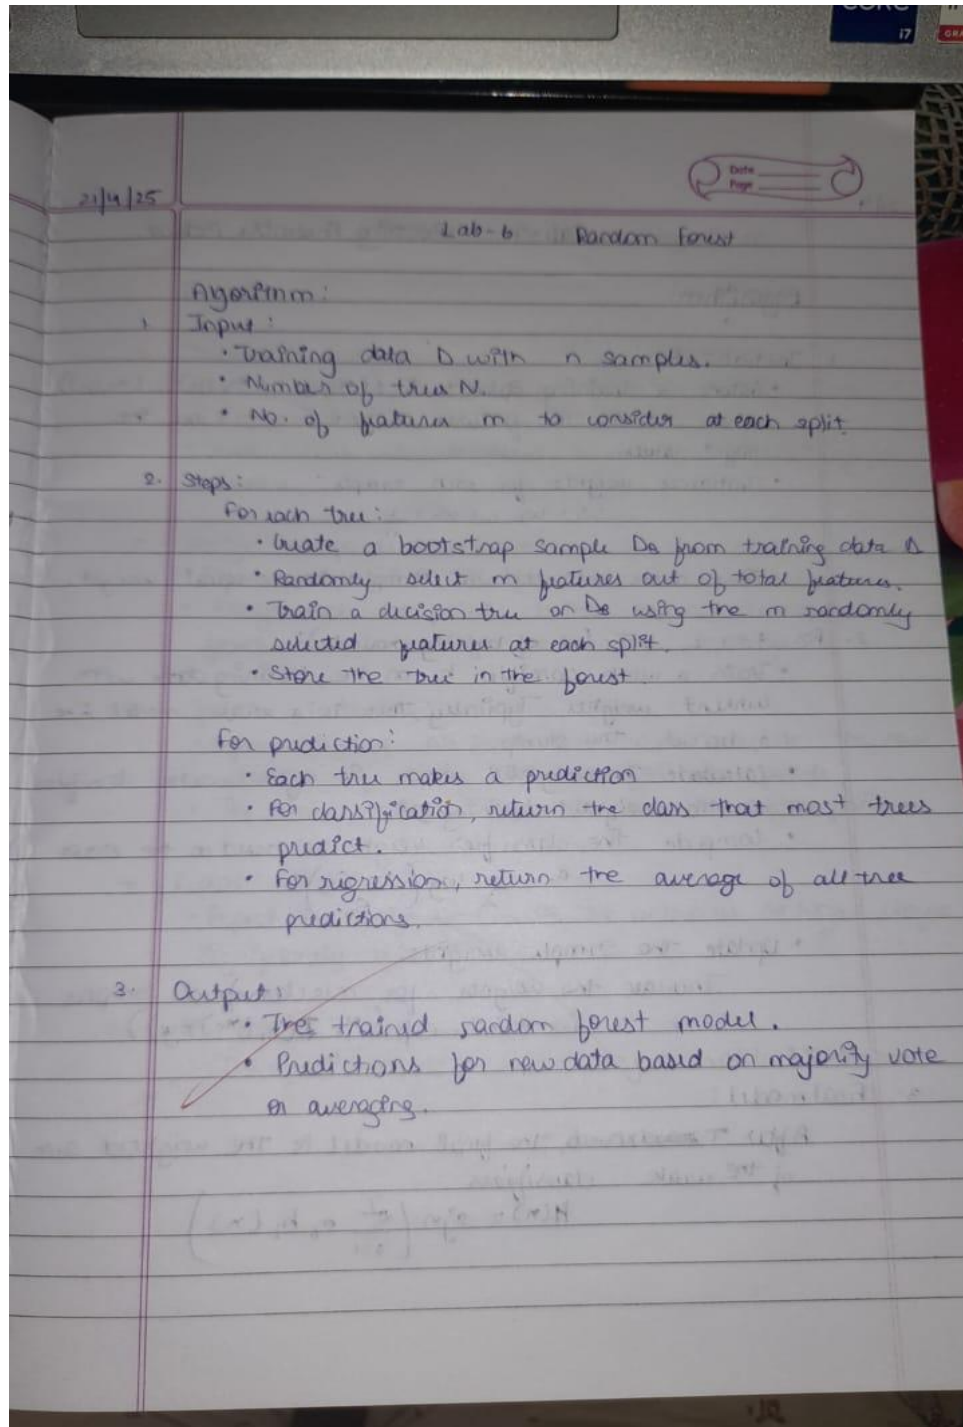 CORE
i7
Date
Page
21/4/25
Lab-6 Random Forest
Algorithm:
1. Input:
• Training data D with n samples.
• Number of trees N.
• No. of features m to consider at each split.
2. Steps:
For each tree:
• Create a bootstrap sample DB from training data D
• Randomly select m features out of total features.
• Train a decision tree on DB using the m randomly
selected features at each split.
• Store the tree in the forest
For prediction:
• Each tree makes a prediction
• For classification, return the class that most trees
predict.
• For regression, return the average of all tree
predictions.
3. Output:
• The trained random forest model.
• Predictions for new data based on majority vote
or averaging.